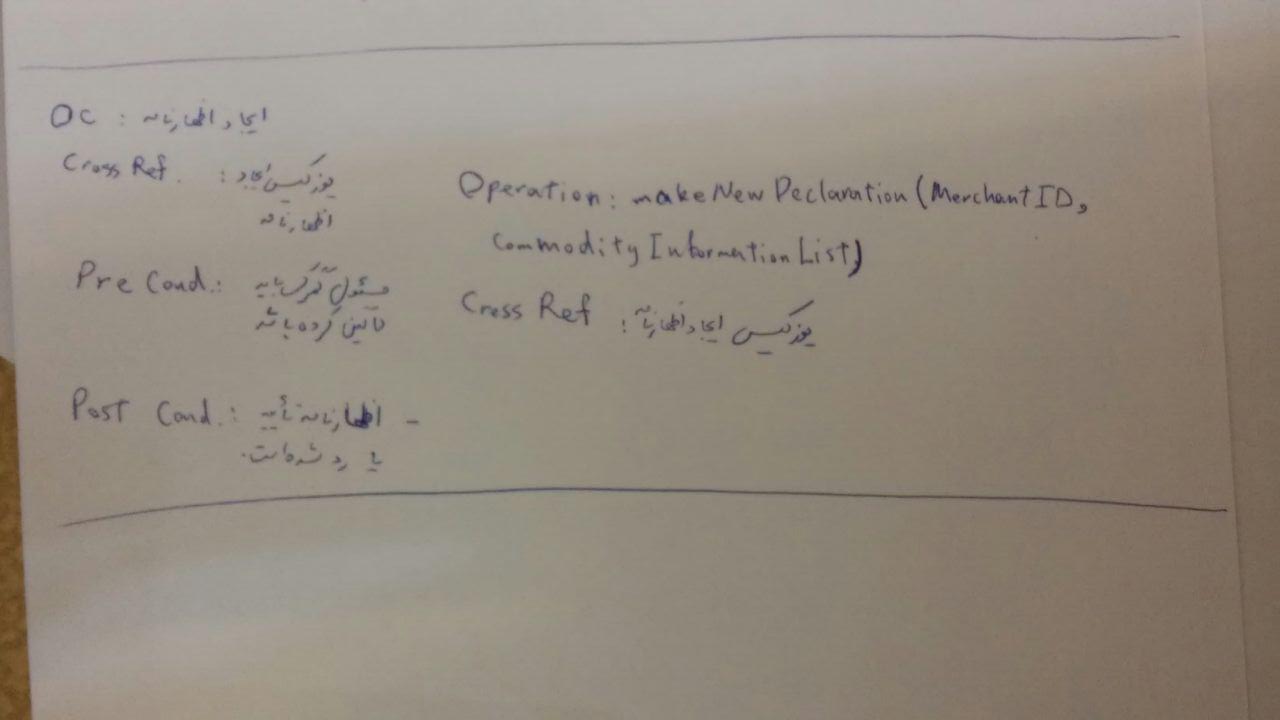 OC : ایجاد اظهارنامه
Cross Ref. : یوزکیس ایجاد
اظهارنامه
Pre Cond.: مسئول گمرک باید
لاگین کرده باشد
Post Cond.: اظهارنامه تأیید -
یا رد شده است.
Operation: makeNewDeclaration(MerchantID,
Commodity Information List)
Cross Ref : یوزکیس ایجاد اظهارنامه